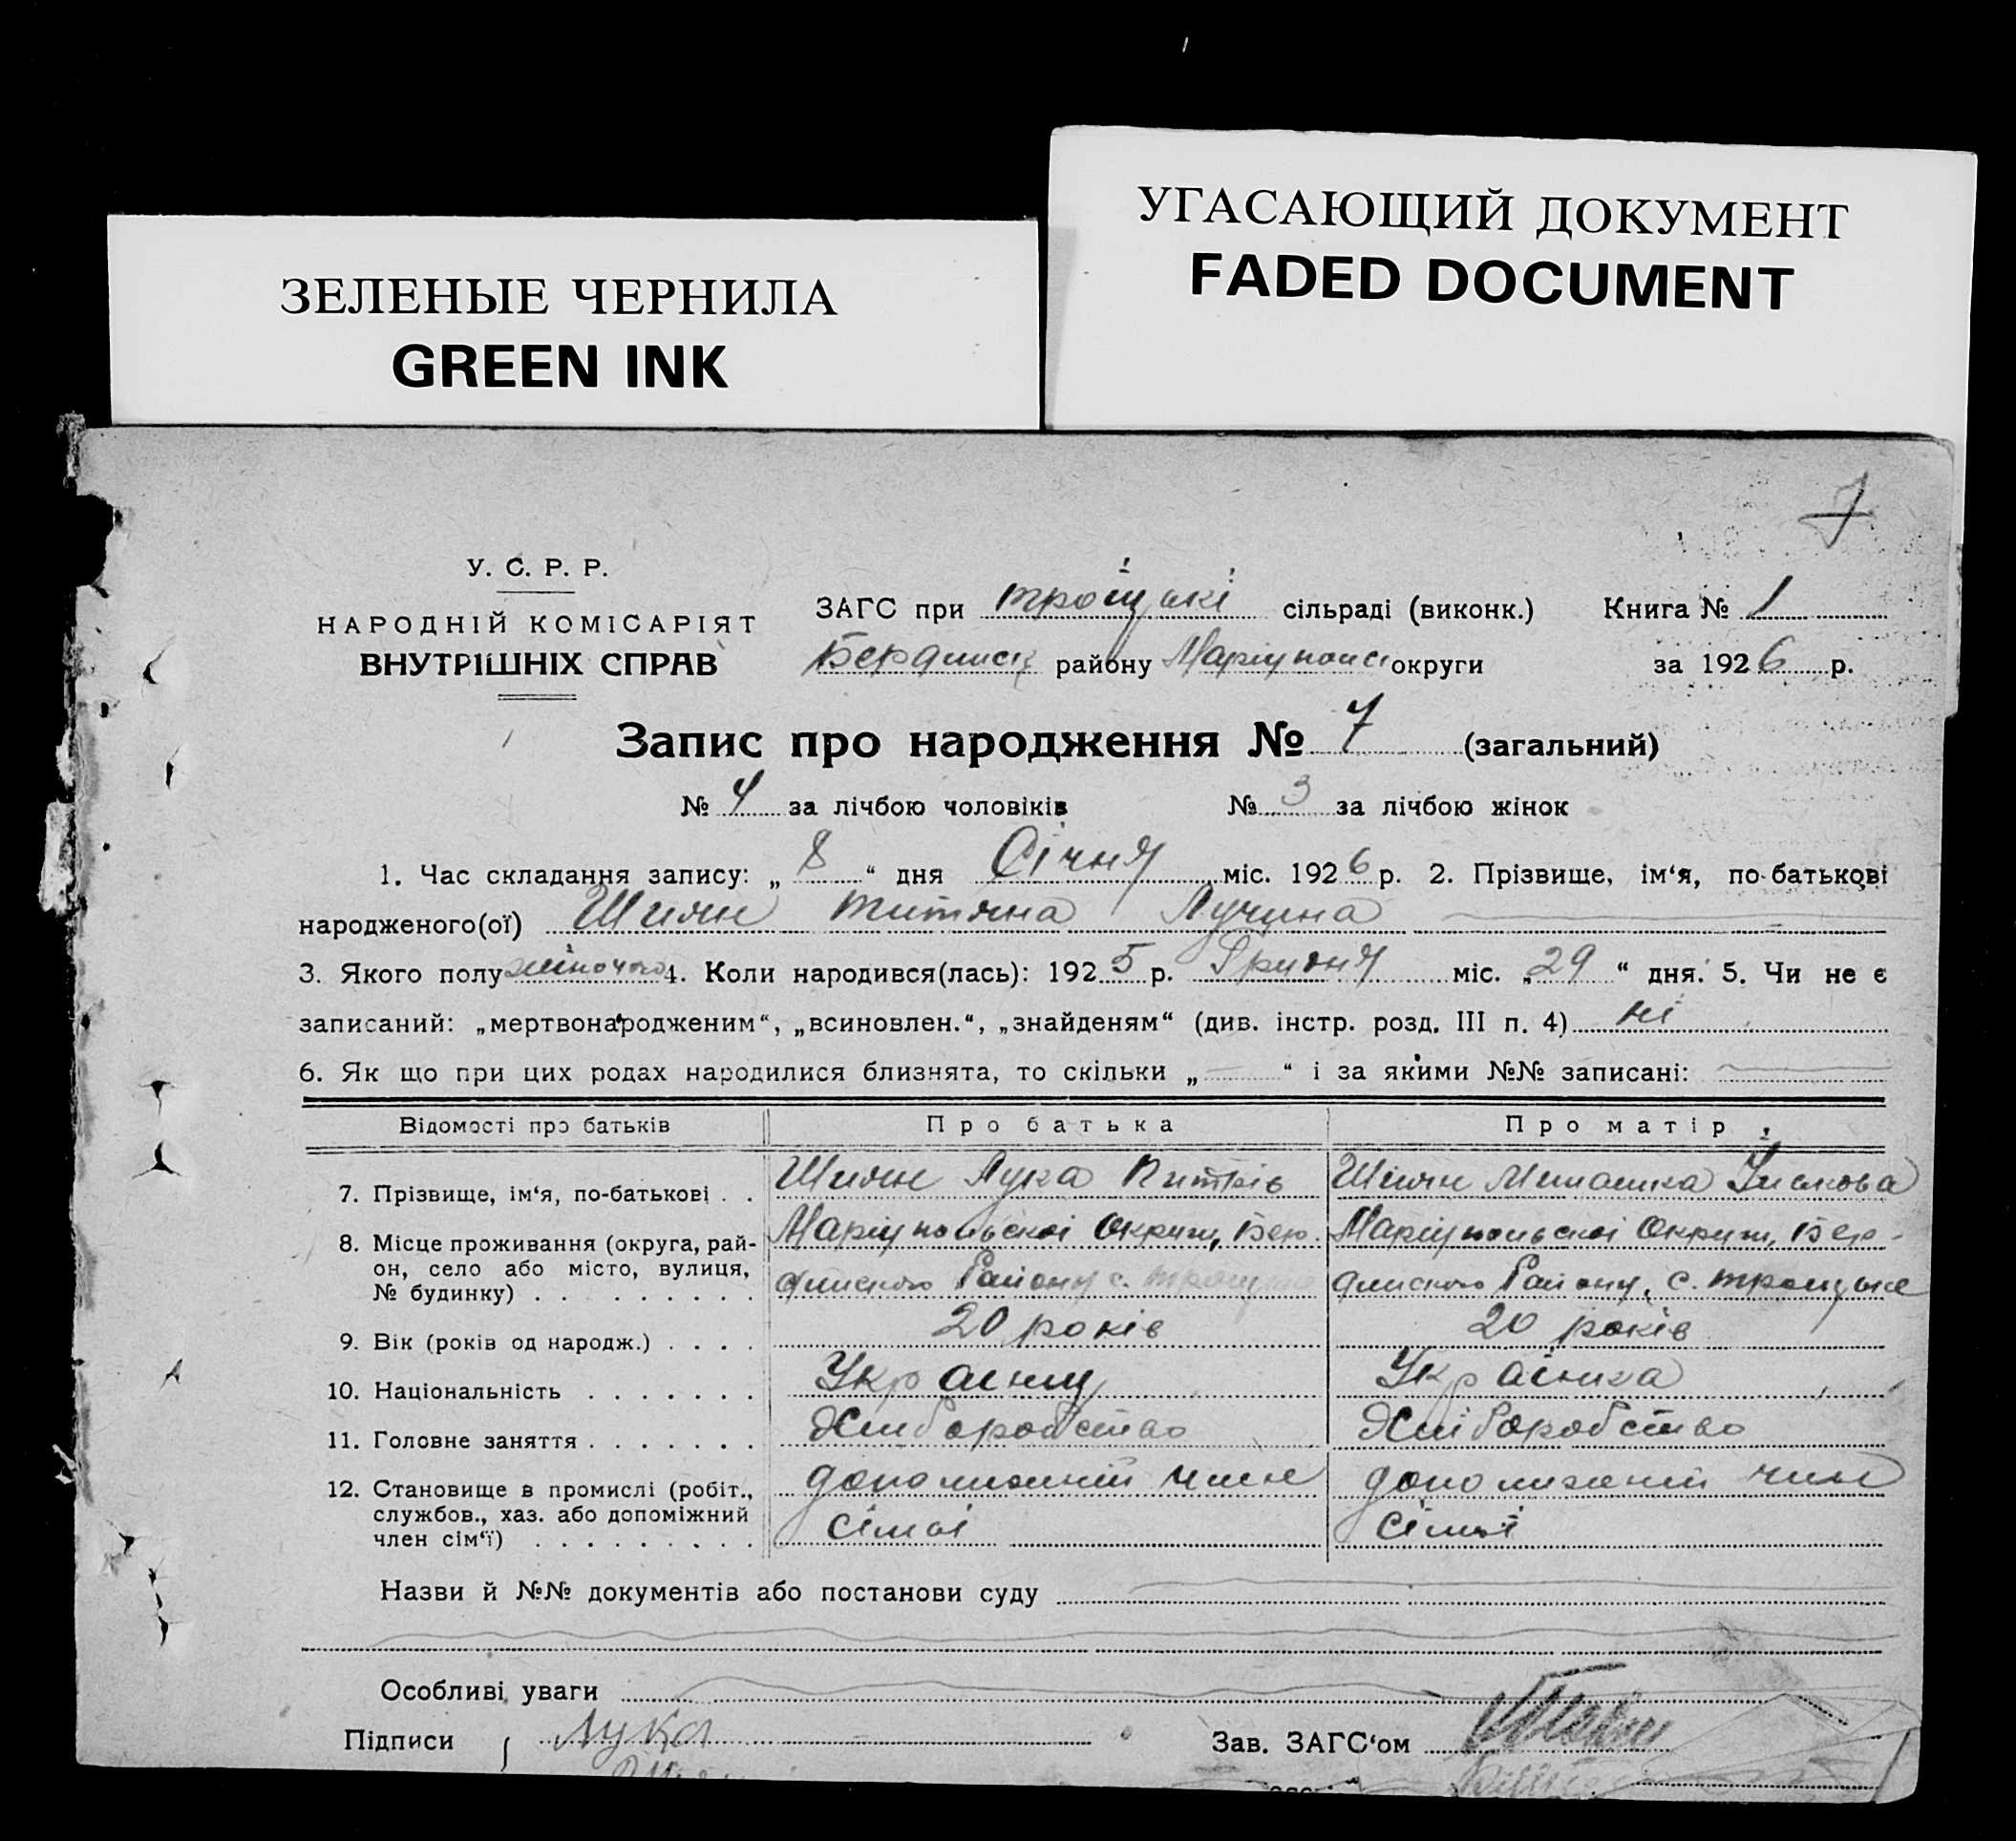 УГАСАЮЩИЙ ДОКУМЕНТ
FADED DOCUMENT
ЗЕЛЕНЫЕ ЧЕРНИЛА
GREEN INK
7
У. С. Р. Р.
НАРОДНІЙ КОМІСАРІЯТ
ВНУТРІШНІХ СПРАВ
ЗАГС при троїцькі сільраді (виконк.) Книга № 1
Бердянск району Маріупольс округи за 1926 р.
Запис про народження № 7 (загальний)
№ 4 за лічбою чоловіків № 3 за лічбою жінок
1. Час складання запису: „ 8 “ дня Січня міс. 1926 р. 2. Прізвище, ім‘я, по-батькові
народженого(ої) Шиян Титяна Лучина
3. Якого полу жіночого 4. Коли народився(лась): 1925 р. Грудня міс. „29“ дня. 5. Чи не є
записаний: „мертвонародженим“, „всиновлен.“, „знайденям“ (див. інстр. розд. III п. 4) ні
6. Як що при цих родах народилися близнята, то скільки „ — “ і за якими №№ записані:
Відомості про батьків Про батька Про матір
7. Прізвище, ім‘я, по-батькові . . Шиян Лука Шиян
8. Місце проживання (округа, рай- Маріупольскоі Округи, Бер- Маріупольскоі Округи, Бер-
он, село або місто, вулиця, дянского Району с. Троицьке дянского Району, с. Троицьке
№ будинку) . . . . . . . . .
9. Вік (років од народж.) . . . . 20 років 20 років
10. Національність . . . . . . . Украінец Украінка
11. Головне заняття . . . . . . . Хліборобство Хліборобство
12. Становище в промислі (робіт., допоміжній член допоміжній член
службов., хаз. або допоміжний сімьі сімьі
член сім‘ї) . . . . . . . . .
Назви й №№ документів або постанови суду
Особливі уваги
Підписи Лука Зав. ЗАГС‘ом